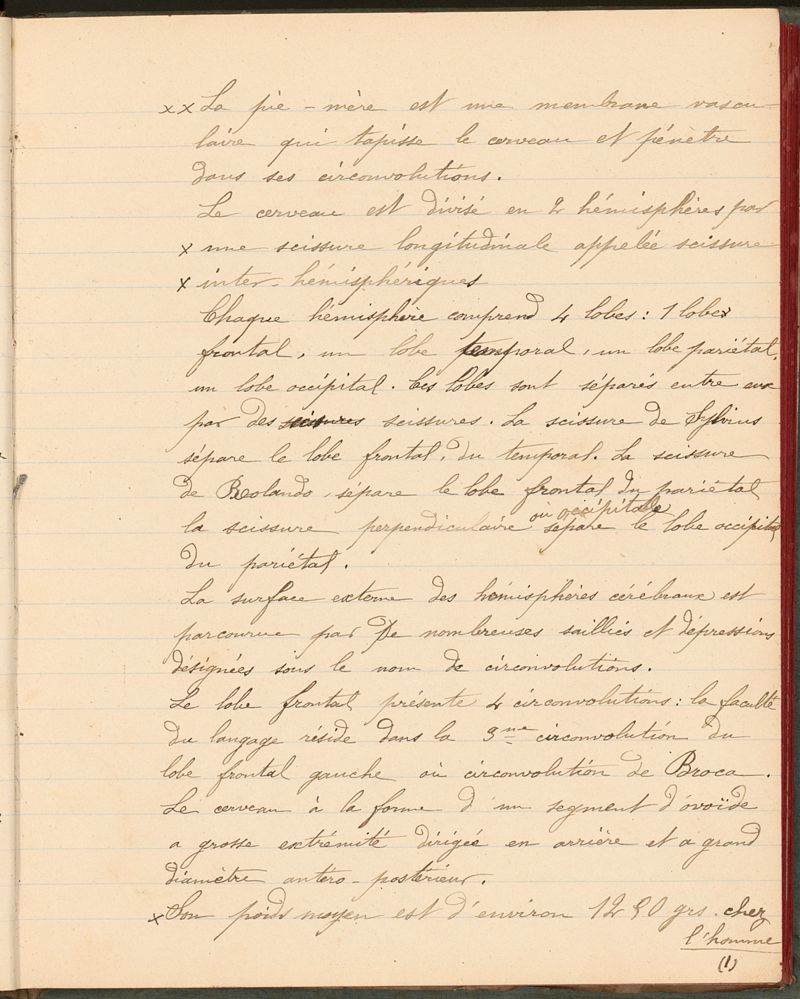 xx La pie-mère est une membrane vascu-
laire qui tapisse le cerveau et pénètre
dans ses circonvolutions.
Le cerveau est divisé en 2 hémisphères par
x une scissure longitudinale appelée scissure
x inter-hémisphériques
Chaque hémisphère comprend 4 lobes : 1 lobes
frontal, un lobe temporal, un lobe pariétal,
un lobe occipital. Ces lobes sont séparés entre eux
par des scissures scissures. La scissure de Sylvius
sépare le lobe frontal, du temporal. La scissure
de Rolando, sépare le lobe frontal du pariétal
ou occipitale
la scissure perpendiculaire sépare le lobe occipital
du pariétal.
La surface externe des hémisphères cérébraux est
parcourue par de nombreuses saillies et dépressions
désignées sous le nom de circonvolutions.
Le lobe frontal présente 4 circonvolutions : la faculté
du langage réside dans la 3me circonvolution du
lobe frontal gauche ou circonvolution de Broca.
Le cerveau à la forme d'un segment d'ovoïde
a grosse extrémité dirigée en arrière et a grand
diamètre antero-postérieur.
x Son poids moyen est d'environ 1250 grs. chez
l'homme
(1)